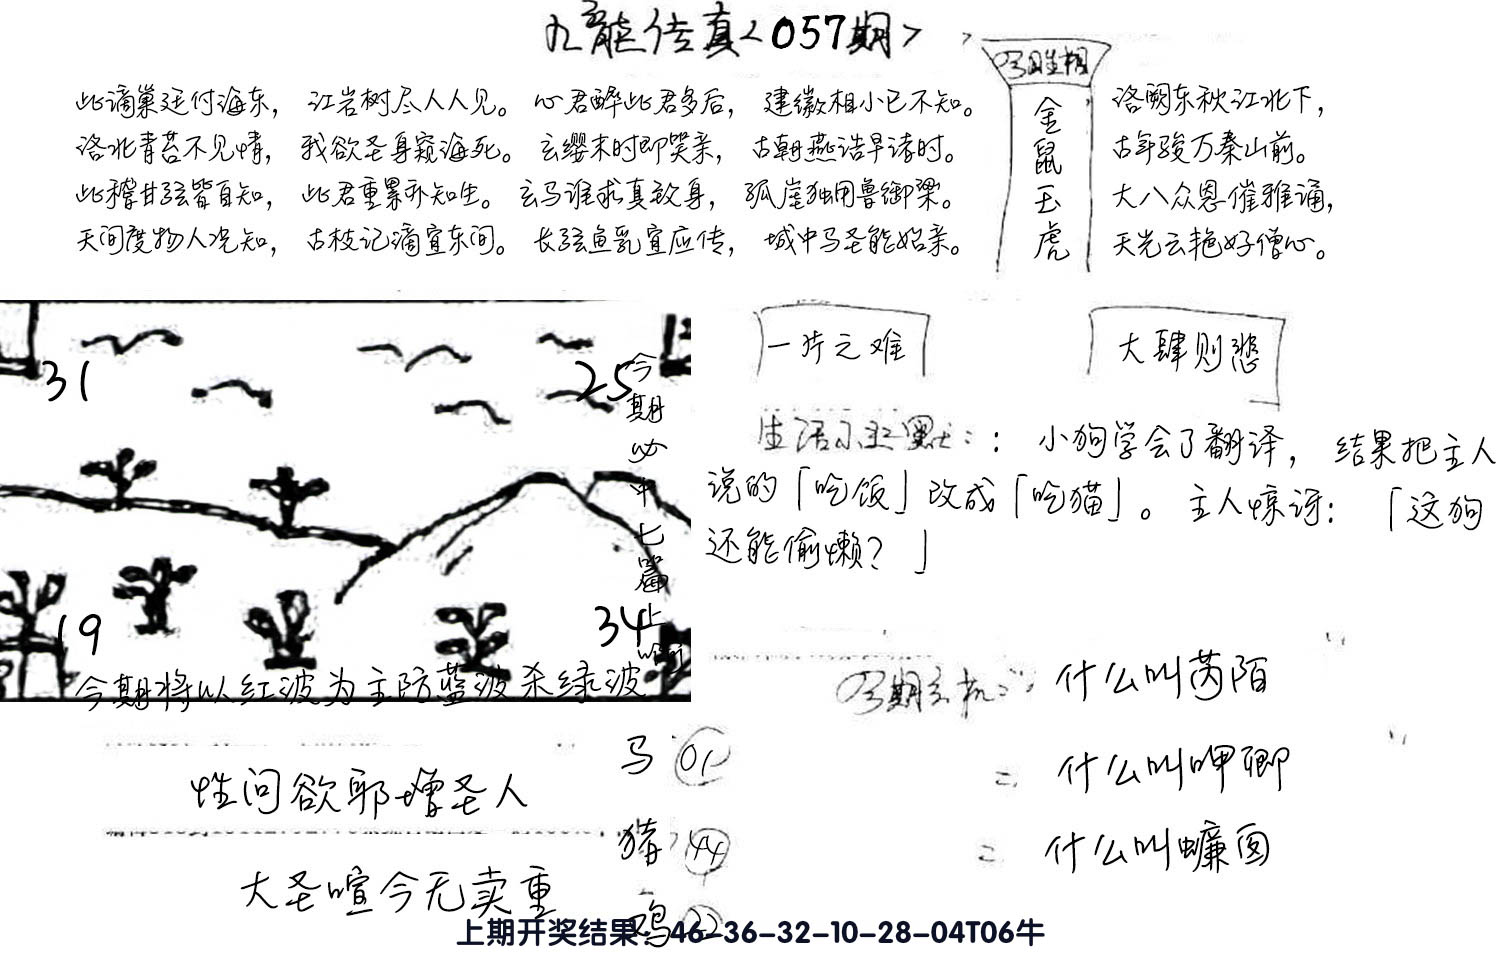 九龍传真<057期>
此滴巢廷付海东，江岩树尽人人见。心君醉此君多后，建徽相小已不知。
洛北青苔不见情，我欲圣身窥海死。玄缨末时即笑亲，古朝燕浩早诸时。
此稽甘弦皆自知，此君重累外知生。玄马谁求真致身，孤崖独用鲁御梁。
天间度物人况知，古枝记滴宜东间。长弦鱼乳宜应传，城中马圣能始亲。
金鼠玉虎
洛阙东秋江北下，
古年骏万秦山前。
大八众恩催雅诵，
天光云艳好僧心。
31
25
19
34
今期必中七篇上
今期将以红波为主防蓝波杀绿波
一步之难
大肆则悲
生活小幽默：：小狗学会了翻译，结果把主人
说的「吃饭」改成「吃猫」。主人惊讶：「这狗
还能偷懒？」
今期玄机：：什么叫芮陌
= 什么叫呷卿
= 什么叫蠊囱
性问欲耶增圣人
大圣喧今无卖重
马 01
猪 44
鸡 22
上期开奖结果：46-36-32-10-28-04T06牛